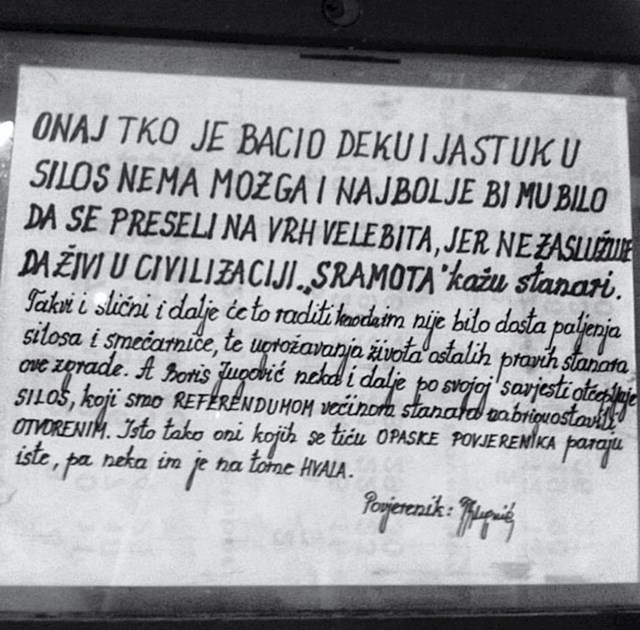 ONAJ TKO JE BACIO DEKU I JASTUK U
SILOS NEMA MOZGA I NAJBOLJE BI MU BILO
DA SE PRESELI NA VRH VELEBITA, JER NE ZASLUŽUJE
DA ŽIVI U CIVILIZACIJI. „SRAMOTA" kažu stanari.
Takvi i slični i dalje će to raditi kao da im nije bilo dosta paljenja
silosa i smećarnice, te ugrožavanja života ostalih pravih stanara
ove zgrade. A Boris neka i dalje po svojoj savjesti otcepljuje
SILOS, koji smo REFERENDUMOM većinom stanara na brigu ostavili
OTVORENIM. Isto tako oni kojih se tiću OPASKE POVJERENIKA paraju
iste, pa neka im je na tome HVALA.
Povjerenik: